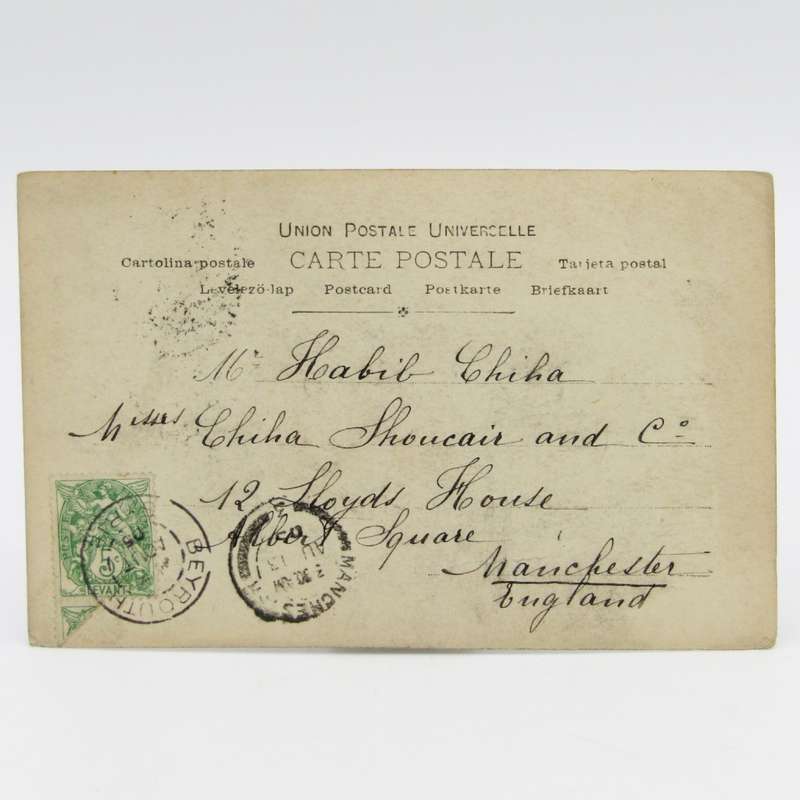 UNION POSTALE UNIVERSELLE
Cartolina postale CARTE POSTALE Tarjeta postal
Levelező-lap Postcard Postkarte Briefkaart
Mr Habib Chiha
Messrs Chiha Shoucair and Co
12 Lloyds House
Albert Square
Manchester
England
5c
LEVANT
BEYROUTH
MANCHESTER
AU 13